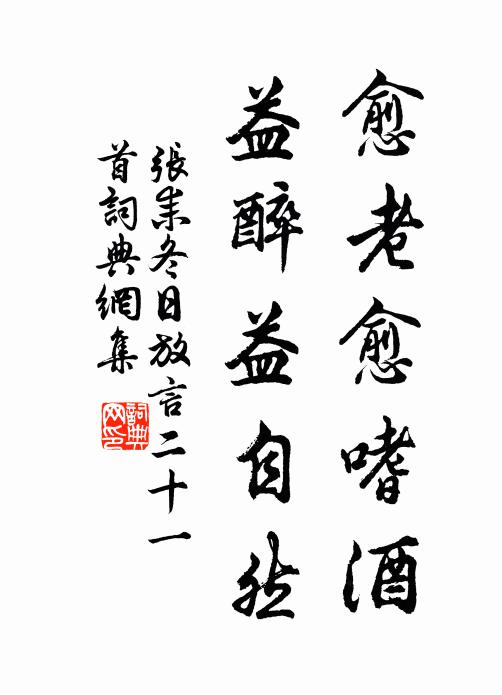 愈老愈嗜酒
益醉益自然
張耒冬日放言二十一
首詞典網集
詞典网印